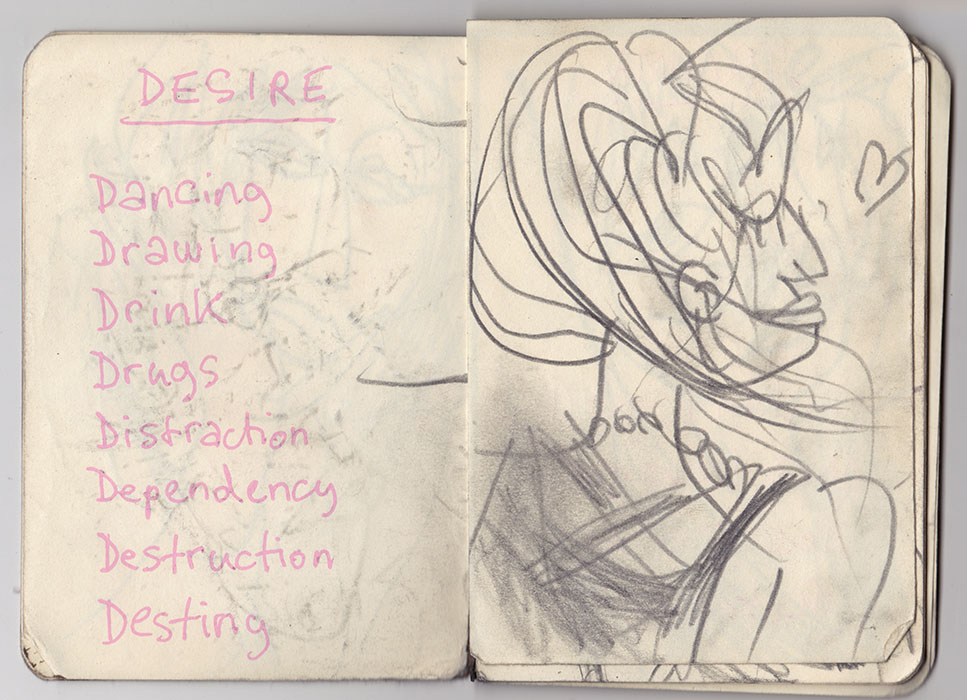 DESIRE
Dancing
Drawing
Drink
Drugs
Distraction
Dependency
Destruction
Desting